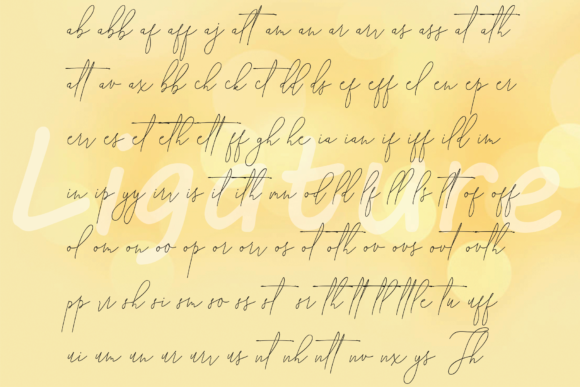 ab abb af aff aj att am an ar arr as ass at ath
att av ax bb ch ck ct dd ds ef eff el en ep er
err es et eth ett ff gh he ia ian if iff ild im
Ligature
in ip yy irr is it ith mn od ld lf ll ls lt of off
ol om on oo op or orr os ot oth ov ovs ovt ovth
pp rr sh si sm so ss st th tt tl ttle tu uff
ui um un ur urr us ut uh utt uv ux ys Th